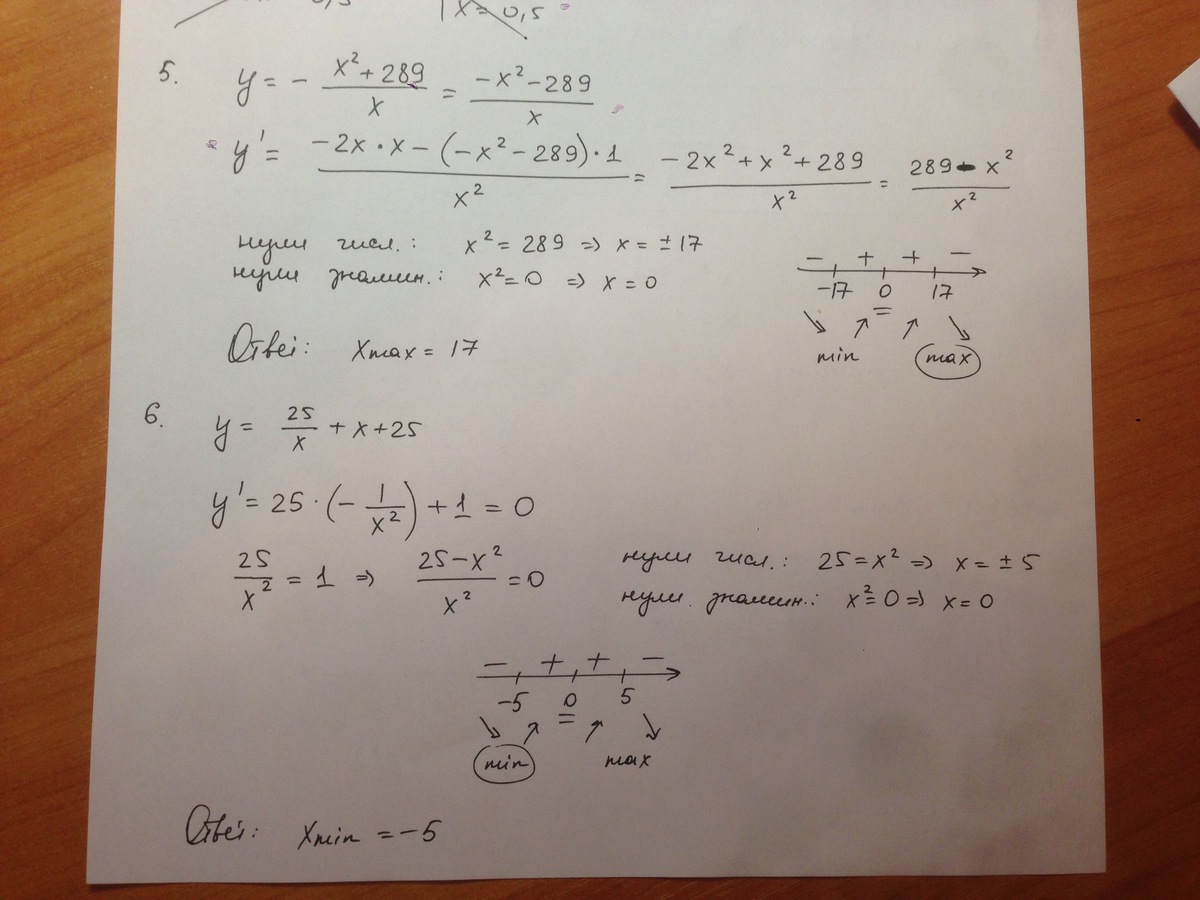 x = 0,5
5. y = - (x² + 289)/x = (-x² - 289)/x
y' = (-2x · x - (-x² - 289) · 1)/x² = (-2x² + x² + 289)/x² = (289 - x²)/x²
нули числ.: x² = 289 => x = ±17
нули знамин.: x² = 0 => x = 0
- + + -
-17 0 17
min max
Ответ: Xmax = 17
6. y = 25/x + x + 25
y' = 25 · (- 1/x²) + 1 = 0
25/x² = 1 => (25 - x²)/x² = 0
нули числ.: 25 = x² => x = ±5
нули знамин.: x² = 0 => x = 0
- + + -
-5 0 5
min max
Ответ: Xmin = -5